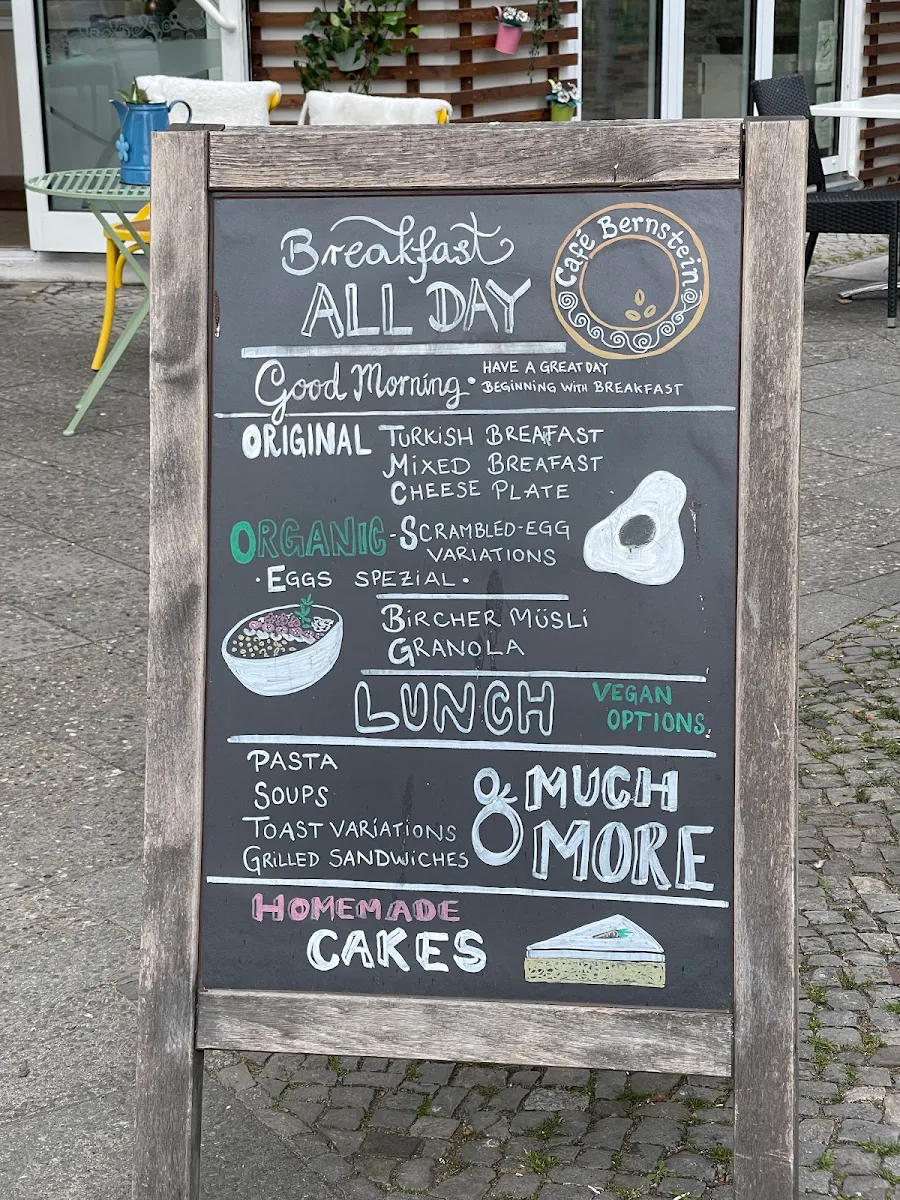 Breakfast
ALL DAY
Café Bernstein
Good Morning • HAVE A GREAT DAY
BEGINNING WITH BREAKFAST
ORIGINAL TURKISH BREAFAST
MIXED BREAFAST
CHEESE PLATE
ORGANIC - SCRAMBLED-EGG
VARIATIONS
• EGGS SPEZIAL •
BIRCHER MÜSLI
GRANOLA
LUNCH VEGAN
OPTIONS.
PASTA
SOUPS
TOAST VARIATIONS
GRILLED SANDWICHES
& MUCH
MORE
HOMEMADE
CAKES